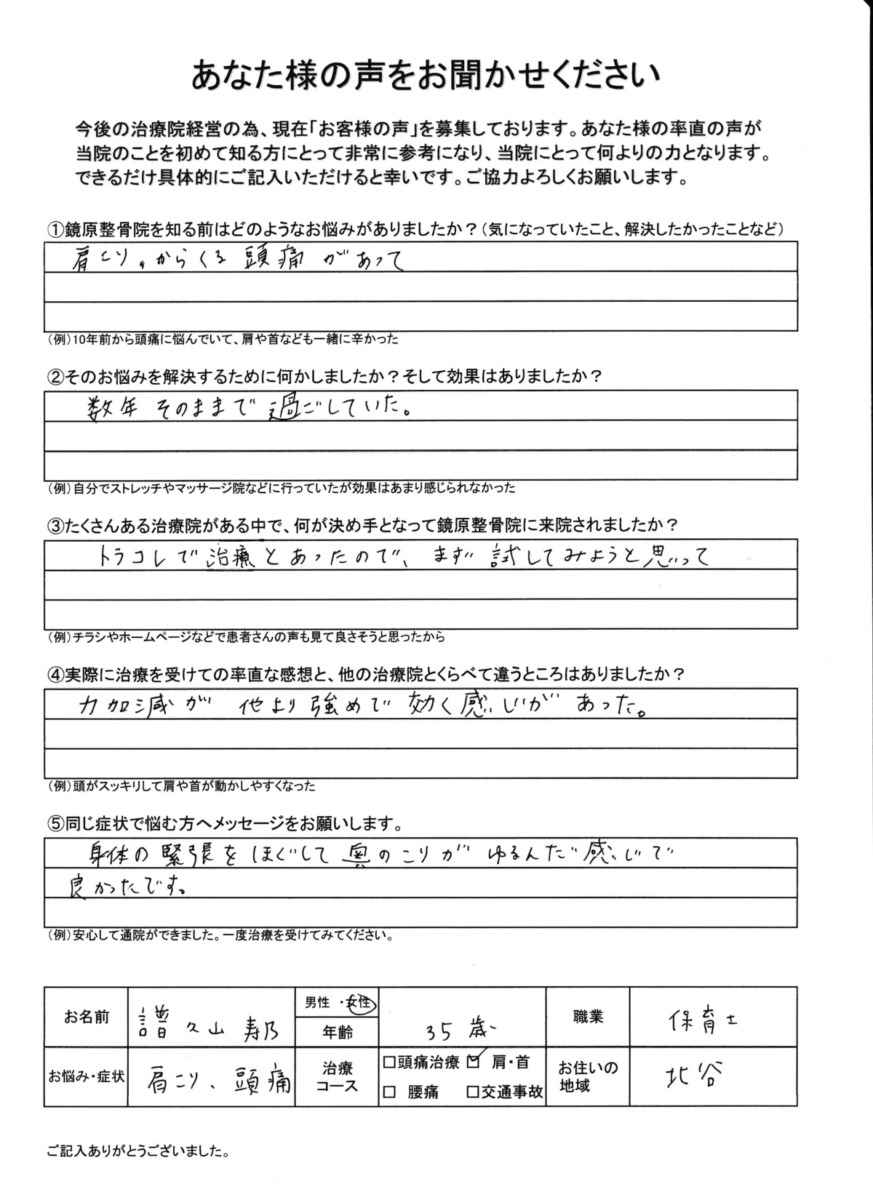 あなた様の声をお聞かせください
今後の治療院経営の為、現在「お客様の声」を募集しております。あなた様の率直の声が
当院のことを初めて知る方にとって非常に参考になり、当院にとって何よりの力となります。
できるだけ具体的にご記入いただけると幸いです。ご協力よろしくお願いします。
①鏡原整骨院を知る前はどのようなお悩みがありましたか?(気になっていたこと、解決したかったことなど)
肩こり。からくる頭痛があって
(例)10年前から頭痛に悩んでいて、肩や首なども一緒に辛かった
②そのお悩みを解決するために何かしましたか?そして効果はありましたか?
数年そのままで過ごしていた。
(例)自分でストレッチやマッサージ院などに行っていたが効果はあまり感じられなかった
③たくさんある治療院がある中で、何が決め手となって鏡原整骨院に来院されましたか?
トラコレで治療とあったので、まず試してみようと思って
(例)チラシやホームページなどで患者さんの声も見て良さそうと思ったから
④実際に治療を受けての率直な感想と、他の治療院とくらべて違うところはありましたか?
力加減が他より強めで効く感じがあった。
(例)頭がスッキリして肩や首が動かしやすくなった
⑤同じ症状で悩む方へメッセージをお願いします。
身体の緊張をほぐして奥のこりがゆるんだ感じで
良かったです。
(例)安心して通院ができました。一度治療を受けてみてください。
お名前 譜久山 寿乃 男性・女性 年齢 35歳 職業 保育士
お悩み・症状 肩こり、頭痛 治療コース □頭痛治療 ☑肩・首 □腰痛 □交通事故 お住いの地域 北谷
ご記入ありがとうございました。